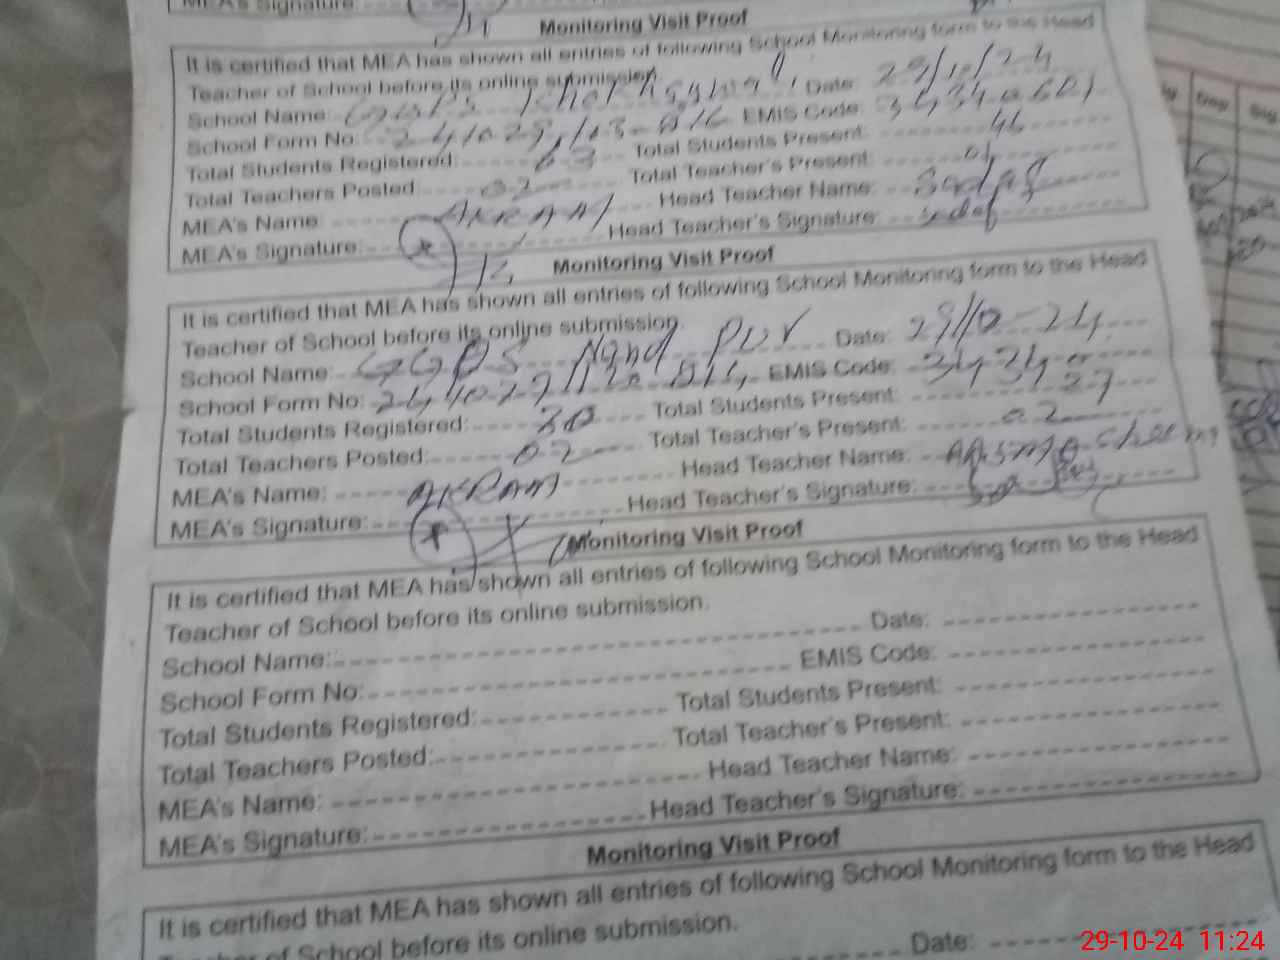 MEA's Signature:
Monitoring Visit Proof
It is certified that MEA has shown all entries of following School Monitoring form to the Head
Teacher of School before its online submission.
School Name: Date: 29/10/24
School Form No: EMIS Code:
Total Students Registered: 63 Total Students Present: 46
Total Teachers Posted: 02 Total Teacher's Present: 01
MEA's Name: AKRAM Head Teacher Name: Sadaf
MEA's Signature: Head Teacher's Signature: Sadaf
Monitoring Visit Proof
It is certified that MEA has shown all entries of following School Monitoring form to the Head
Teacher of School before its online submission.
School Name: GGPS Nand Pur Date: 29/10-24
School Form No: EMIS Code:
Total Students Registered: 30 Total Students Present: 27
Total Teachers Posted: 02 Total Teacher's Present: 02
MEA's Name: AKRAM Head Teacher Name:
MEA's Signature: Head Teacher's Signature:
Monitoring Visit Proof
It is certified that MEA has shown all entries of following School Monitoring form to the Head
Teacher of School before its online submission.
School Name: Date:
School Form No: EMIS Code:
Total Students Registered: Total Students Present:
Total Teachers Posted: Total Teacher's Present:
MEA's Name: Head Teacher Name:
MEA's Signature: Head Teacher's Signature:
Monitoring Visit Proof
It is certified that MEA has shown all entries of following School Monitoring form to the Head
Teacher of School before its online submission.
Date:
29-10-24 11:24